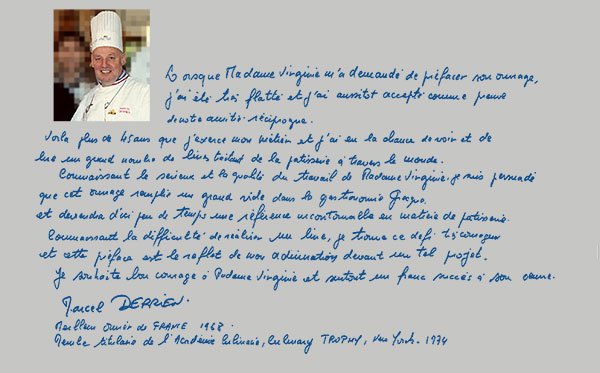 Lorsque Madame Virginie m'a demandé de préfacer son ouvrage,
j'ai été très flatté et j'ai aussitôt accepté comme preuve
de notre amitié réciproque.
Voilà plus de 45 ans que j'exerce mon métier et j'ai eu la chance de voir et de
lire un grand nombre de livres traitant de la patisserie à travers le monde.
Connaissant le serieux et la qualité du travail de Madame Virginie. je suis persuadé
que cet ouvrage remplir un grand vide dans la gastronomie
et deviendra d'ici peu de temps une référence incontournable en matière de patisserie.
Connaissant la difficulté de réaliser un livre, je trouve ce défi
et cette préface est le reflet de mon admiration devant un tel projet.
Je souhaite bon courage à Madame Virginie et surtout un franc succès à son oeuvre.
Marcel DERRIEN.
Meilleur ouvrier de FRANCE 1968.
Membre titulaire de l'Académie Culinaire, Culinary TROPHY, New York. 1974